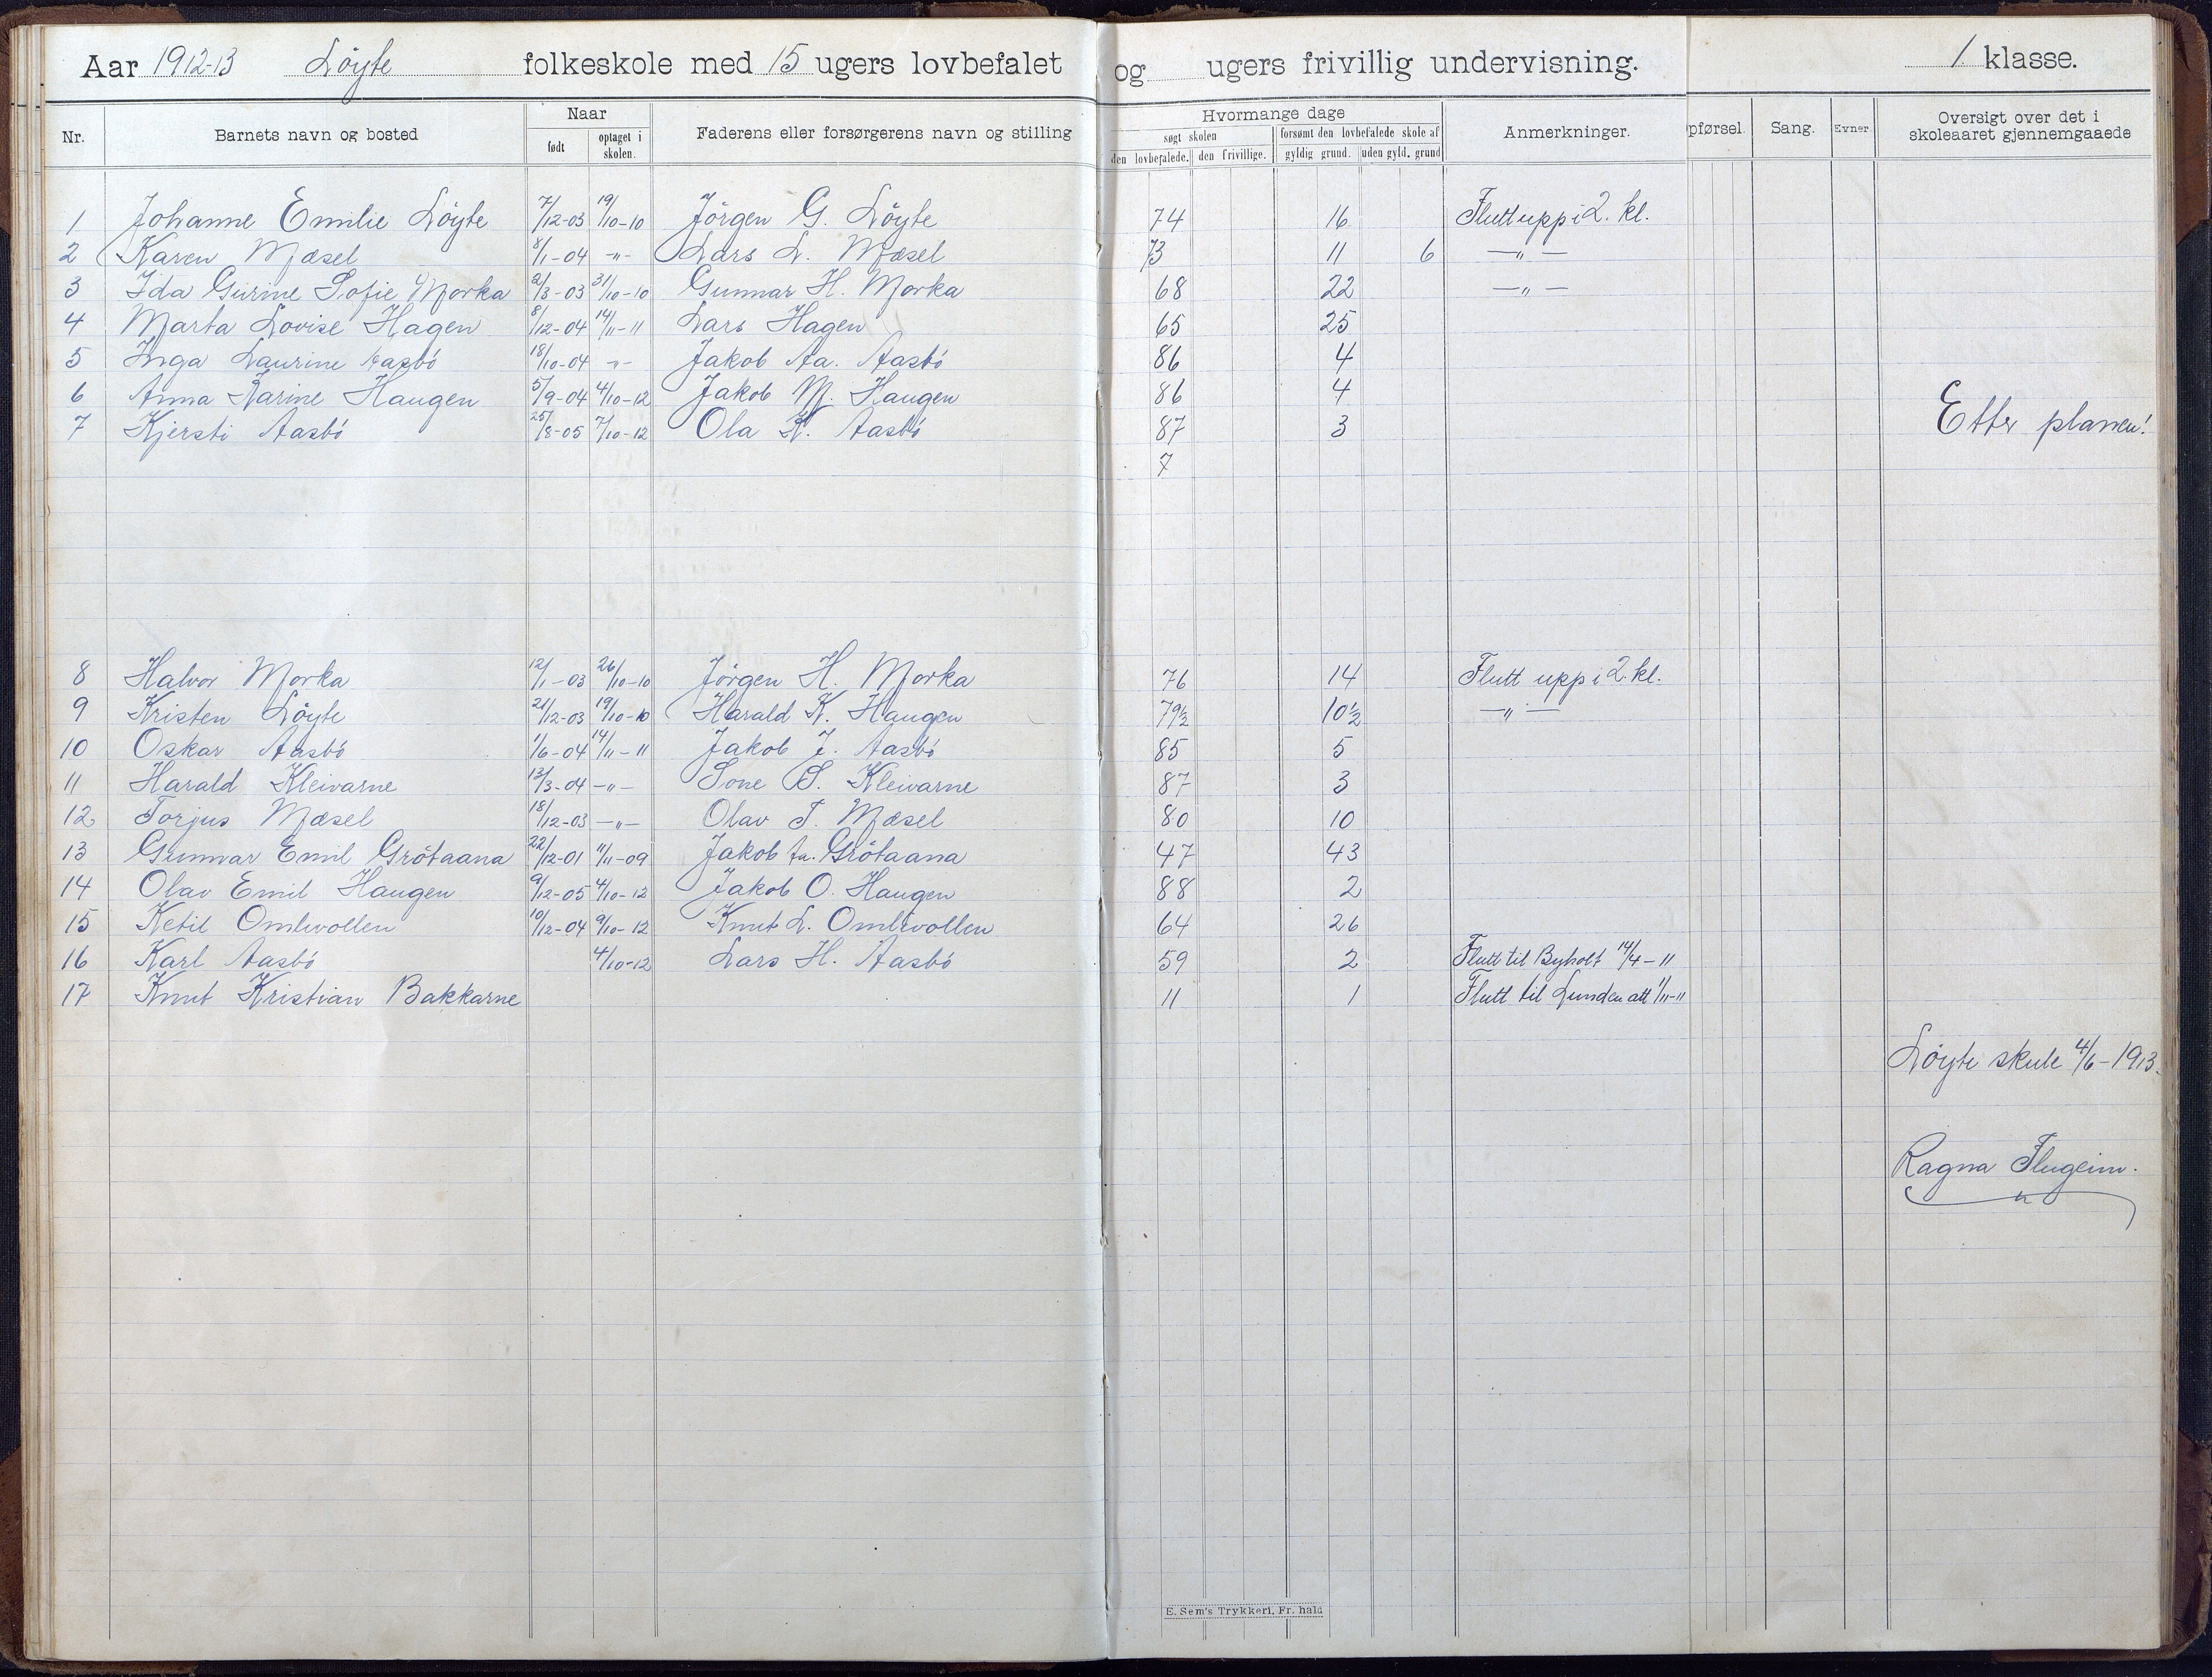 Aar 1912-13 Löyte folkeskole med 15 ugers lovbefalet og ugers frivillig undervisning. 1 klasse.
Nr. Barnets navn og bosted Naar født optaget i skolen. Faderens eller forsørgerens navn og stilling Hvormange dage søgt skolen den lovbefalede. den frivillige. forsømt den lovbefalede skole af gyldig grund. uden gyld. grund Anmerkninger. pførsel. Sang. Evner. Oversigt over det i skoleaaret gjennemgaaede
1 Johanne Emilie Löyte 7/12-03 19/10-10 Jörgen G. Löyte 74 16 Flutt upp i 2. kl.
2 Karen Mæsel 8/1-04 -"- Lars L. Mæsel 73 11 6 -"-
3 Ida Gurine Sofie Morka 2/3-03 31/10-10 Gunnar H. Morka 68 22 -"-
4 Marta Lovise Hagen 8/12-04 14/11-11 Lars Hagen 65 25
5 Inga Laurine Aasbö 18/10-04 -"- Jakob Aa. Aasbö 86 4
6 Anna Karine Haugen 5/9-04 4/10-12 Jakob M. Haugen 86 4
7 Kjersti Aasbö 25/8-05 7/10-12 Ola K. Aasbö 87 3 Etter planen!
7
8 Halvor Morka 12/1-03 26/10-10 Jörgen H. Morka 76 14 Flutt upp i 2. kl.
9 Kristen Löyte 21/12-03 19/10-10 Harald K. Haugen 79½ 10½ -"-
10 Oskar Aasbö 1/6-04 14/11-11 Jakob J. Aasbö 85 5
11 Harald Kleivarne 13/3-04 -"- Sone S. Kleivarne 87 3
12 Torjus Mæsel 18/12-03 -"- Olav T. Mæsel 80 10
13 Gunnar Emil Grötaana 22/12-01 11/11-09 Jakob Grötaana 47 43
14 Olav Emil Haugen 9/12-05 4/10-12 Jakob O. Haugen 88 2
15 Ketil Omlivollen 10/12-04 9/10-12 Knut L. Omlivollen 64 26
16 Karl Aasbö 4/10-12 Lars H. Aasbö 59 2 Flutt til Byholt 14/4-11
17 Knut Kristian Bakkarne 11 1 Flutt til Lunden att 1/11-11
Löyte skule 4/6-1913.
Ragna Flugeim.
E. Sem's Trykkeri, Fr. hald